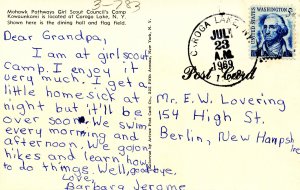 Mohawk Pathways Girl Scout Council's Camp
Kowaunkami is located at Caroga Lake, N. Y.
Shown here is the dining hall and flag field.
3-783
Dear Grandpa,
I am at girl scout
Camp. I enjoy it
very much. I get a
little home sick at
night but it'll be
over soon. We swim
every morning and
afternoon. We go on
hikes and learn how
to do things. Well, goodbye,
Love,
Barbara Jerome
CAROGA LAKE, N.Y.
JUL
23
A.M.
1969
WASHINGTON
5¢
Post Card
Mr. E. W. Lovering
154 High St.
Berlin, New Hampshire